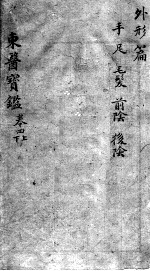 外形篇
手足 毛髮 前陰 後陰
東醫寶鑑 卷四下